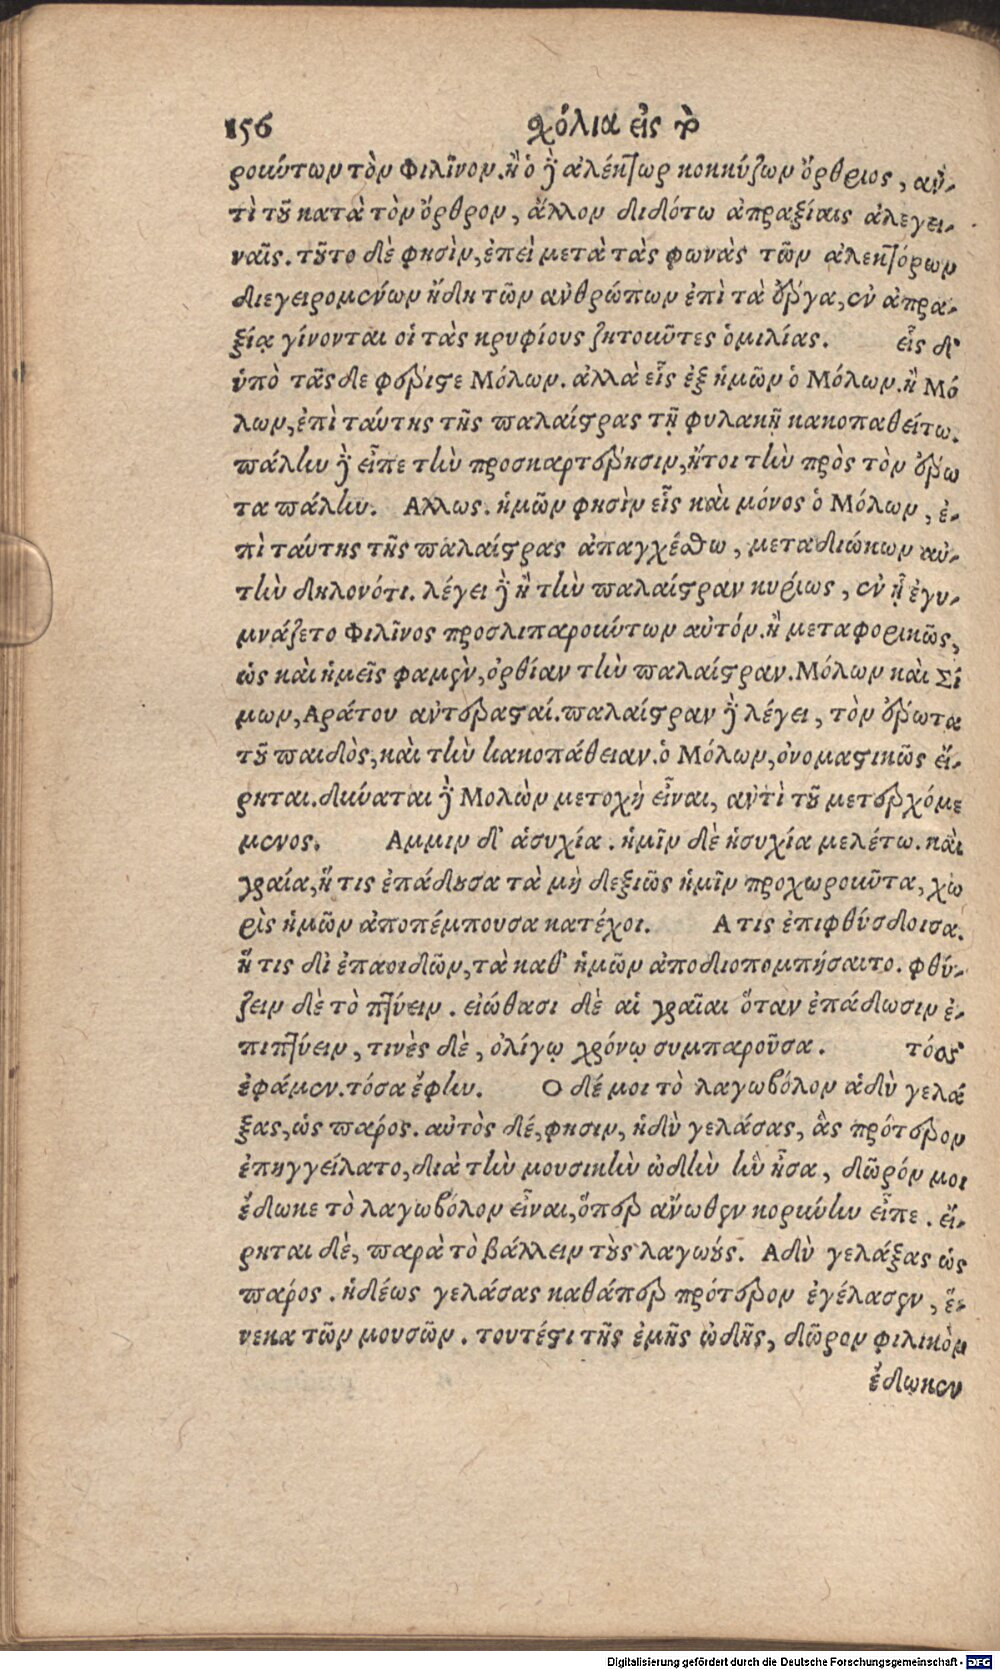 156 χόλια εἰς τὸ
ροιώτων τὸν Φιλῖνον. ἢ ὁ γὰρ ἀλέκτωρ κοκκύζων ὄρθριος, ἀν-
τὶ τοῦ κατὰ τὸν ὄρθρον, ἄλλον διδότω ἀπραξίαις ἀλεγει-
ναῖς. τοῦτο δὲ φησὶν, ἐπεὶ μετὰ τὰς φωνὰς τῶν ἀλεκτόρων
διεγειρομένων ἤδη τῶν ἀνθρώπων ἐπὶ τὰ ἔργα, ἐν ἀπρα-
ξίᾳ γίνονται οἱ τὰς κρυφίους ζητοῦντες ὁμιλίας. εἷς δ'
ὑπὸ τᾶσδε φέριστε Μόλων. ἀλλὰ εἷς ἐξ ἡμῶν ὁ Μόλων. ἢ Μό
λων, ἐπὶ ταύτης τῆς παλαίστρας τῇ φυλακῇ κακοπαθείτω.
πάλην γὰρ εἶπε τὴν προσκαρτέρησιν, ἤτοι τὴν πρὸς τὸν ἔρω
τα πάλην. Αλλως. ἡμῶν φησὶν εἷς καὶ μόνος ὁ Μόλων, ἐ-
πὶ ταύτης τῆς παλαίστρας ἀπαγχέσθω, μεταδιώκων αὐ-
τὴν δηλονότι. λέγει γὰρ ἢ τὴν παλαίστραν κυρίως, ἐν ᾗ ἐγυ-
μνάζετο Φιλῖνος προσλιπαροιώτων αὐτόν. ἢ μεταφορικῶς,
ὡς καὶ ἡμεῖς φαμὲν, ὀρθίαν τὴν παλαίστραν. Μόλων καὶ Σί
μων, Αράτου ἀντερασταί. παλαίστραν γὰρ λέγει, τὸν ἔρωτα
τοῦ παιδὸς, καὶ τὴν κακοπάθειαν. ὁ Μόλων, ὀνομαστικῶς εἴ-
ρηται. δύναται γὰρ Μολὼν μετοχὴ εἶναι, ἀντὶ τοῦ μετερχόμε
μενος. Αμμιν δ' ἁσυχία. ἡμῖν δὲ ἡσυχία μελέτω. καὶ
γραία, ἥ τις ἐπάδουσα τὰ μὴ δεξιῶς ἡμῖν προχωροῦντα, χω
ρὶς ἡμῶν ἀποπέμπουσα κατέχοι. Α τις ἐπιφθύσδοισα.
ἥ τις δὶ ἐπαοιδῶν, τὰ καθ' ἡμῶν ἀποδιοπομπήσαιτο. φθύ-
ζειν δὲ τὸ πτύειν. εἰώθασι δὲ αἱ γραῖαι ὅταν ἐπάδωσιν ἐ-
πιπτύειν, τινὲς δὲ, ὀλίγῳ χρόνῳ συμπαροῦσα. τόσς'
ἐφάμεν. τόσα ἔφην. Ο δέ μοι τὸ λαγωβόλον ἁδὺ γελά
ξας, ὡς πάρος. αὐτὸς δέ, φησιν, ἡδὺ γελάσας, ἃς πρότερον
ἐπηγγείλατο, διὰ τὴν μουσικὴν ὠδὴν ἣν ᾖσα, δῶρόν μοι
ἔδωκε τὸ λαγωβόλον εἶναι, ὅπερ ἄνωθεν κορύνην εἶπε. εἴ-
ρηται δὲ, παρὰ τὸ βάλλειν τοὺς λαγωούς. Αδὺ γελάξας ὡς
πάρος. ἡδέως γελάσας καθάπερ πρότερον ἐγέλασεν, ἕ-
νεκα τῶν μουσῶν. τουτέστι τῆς ἐμῆς ὠδῆς, δῶρον φιλικὸν
ἔδωκεν
Digitalisierung gefördert durch die Deutsche Forschungsgemeinschaft - DFG